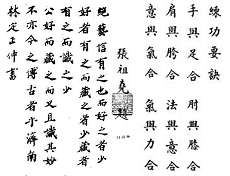 練功要訣
手與足合　肘與膝合
肩與胯合　法意合
意與氣合　氣與力合
張祖堯題
絕藝信有之也而好之者少
好者有之而識之者少藏者
有之而識之少
公好而藏之而又且識其妙
不亦今之博古者乎濟南
林定正仲書